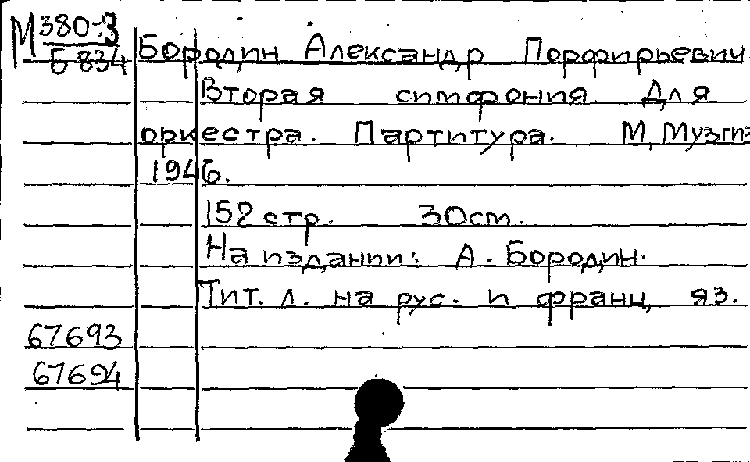 М 380-3
Б 834
Бородин Александр Порфирьевич
Вторая симфония для
оркестра. Партитура. М, Музгиз
1946.
152 стр. 30 cm.
На издании: А. Бородин.
Тит. л. на рус. и франц, яз.
67693
67694